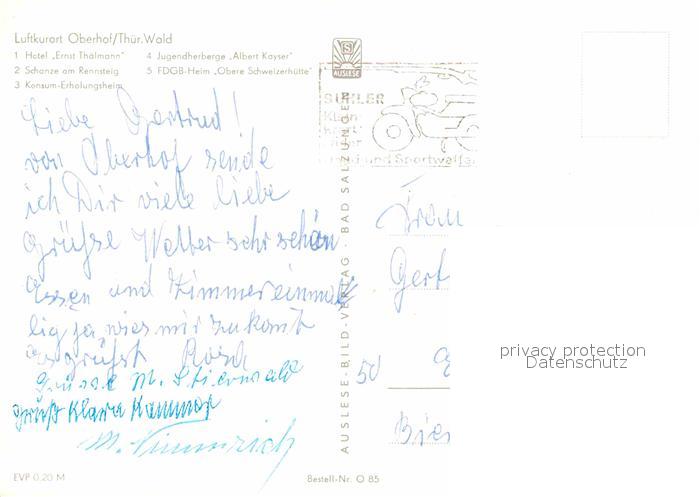 Luftkurort Oberhof/Thür. Wald
1 Hotel „Ernst Thälmann"
2 Schanze am Rennsteig
3 Konsum-Erholungsheim
4 Jugendherberge „Albert Kayser"
5 FDGB-Heim „Obere Schweizerhütte"
AUSLESE
Liebe Gertrud!
von Oberhof sende
ich Dir viele liebe
Grüße Wetter sehr schön
Essen und Zimmer einma
lig ja wies mir zukomt
es grüßt Rosa
Grüsse M. Stierwald
Gruß Klara Kammer
M. Nimmrich
AUSLESE-BILD-VERLAG · BAD SALZUNGEN
SUHLER
und Sportwaffen
Frau
Gert
50
Bie
privacy protection
Datenschutz
EVP 0,20 M
Bestell-Nr. O 85